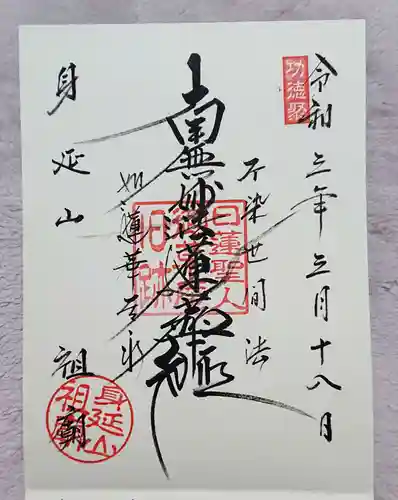 令和三年三月十八日
功徳聚
不染世間法
南無妙法蓮華経
日蓮聖人
旧跡
如蓮華在水
身延山 祖廟
身延山
祖廟